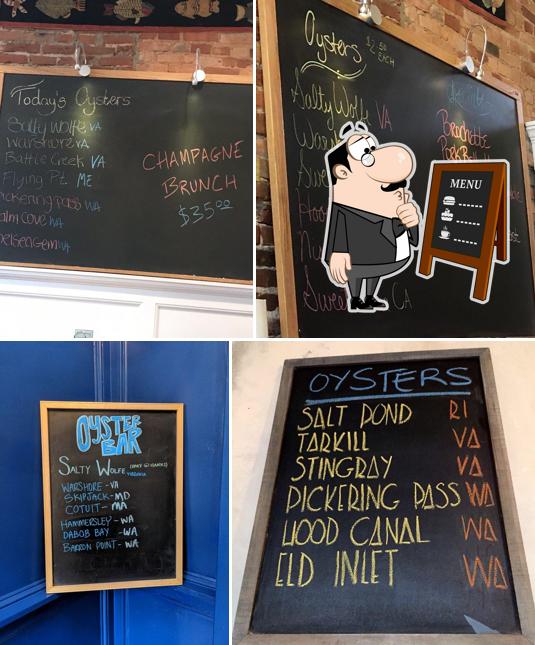 Today's Oysters
Salty Wolfe VA
Warshore VA
Battle Creek VA
Flying Pt. ME
Pickering pass WA
alm Cove WA
elsea Gem WA
CHAMPAGNE
BRUNCH
$35.00
Oysters
$2.50
EACH
Salty Wolfe VA
Swee
CA
Brochette
MENU
OYSTER
BAR
SALTY WOLFE
VIRGINIA
WARSHORE - VA
SKIPJACK - MD
COTUIT - MA
HAMMERSLEY - WA
DABOB BAY - WA
BARRON POINT - WA
OYSTERS
SALT POND RI
TARKILL VA
STINGRAY VA
PICKERING PASS WA
HOOD CANAL WA
ELD INLET WA